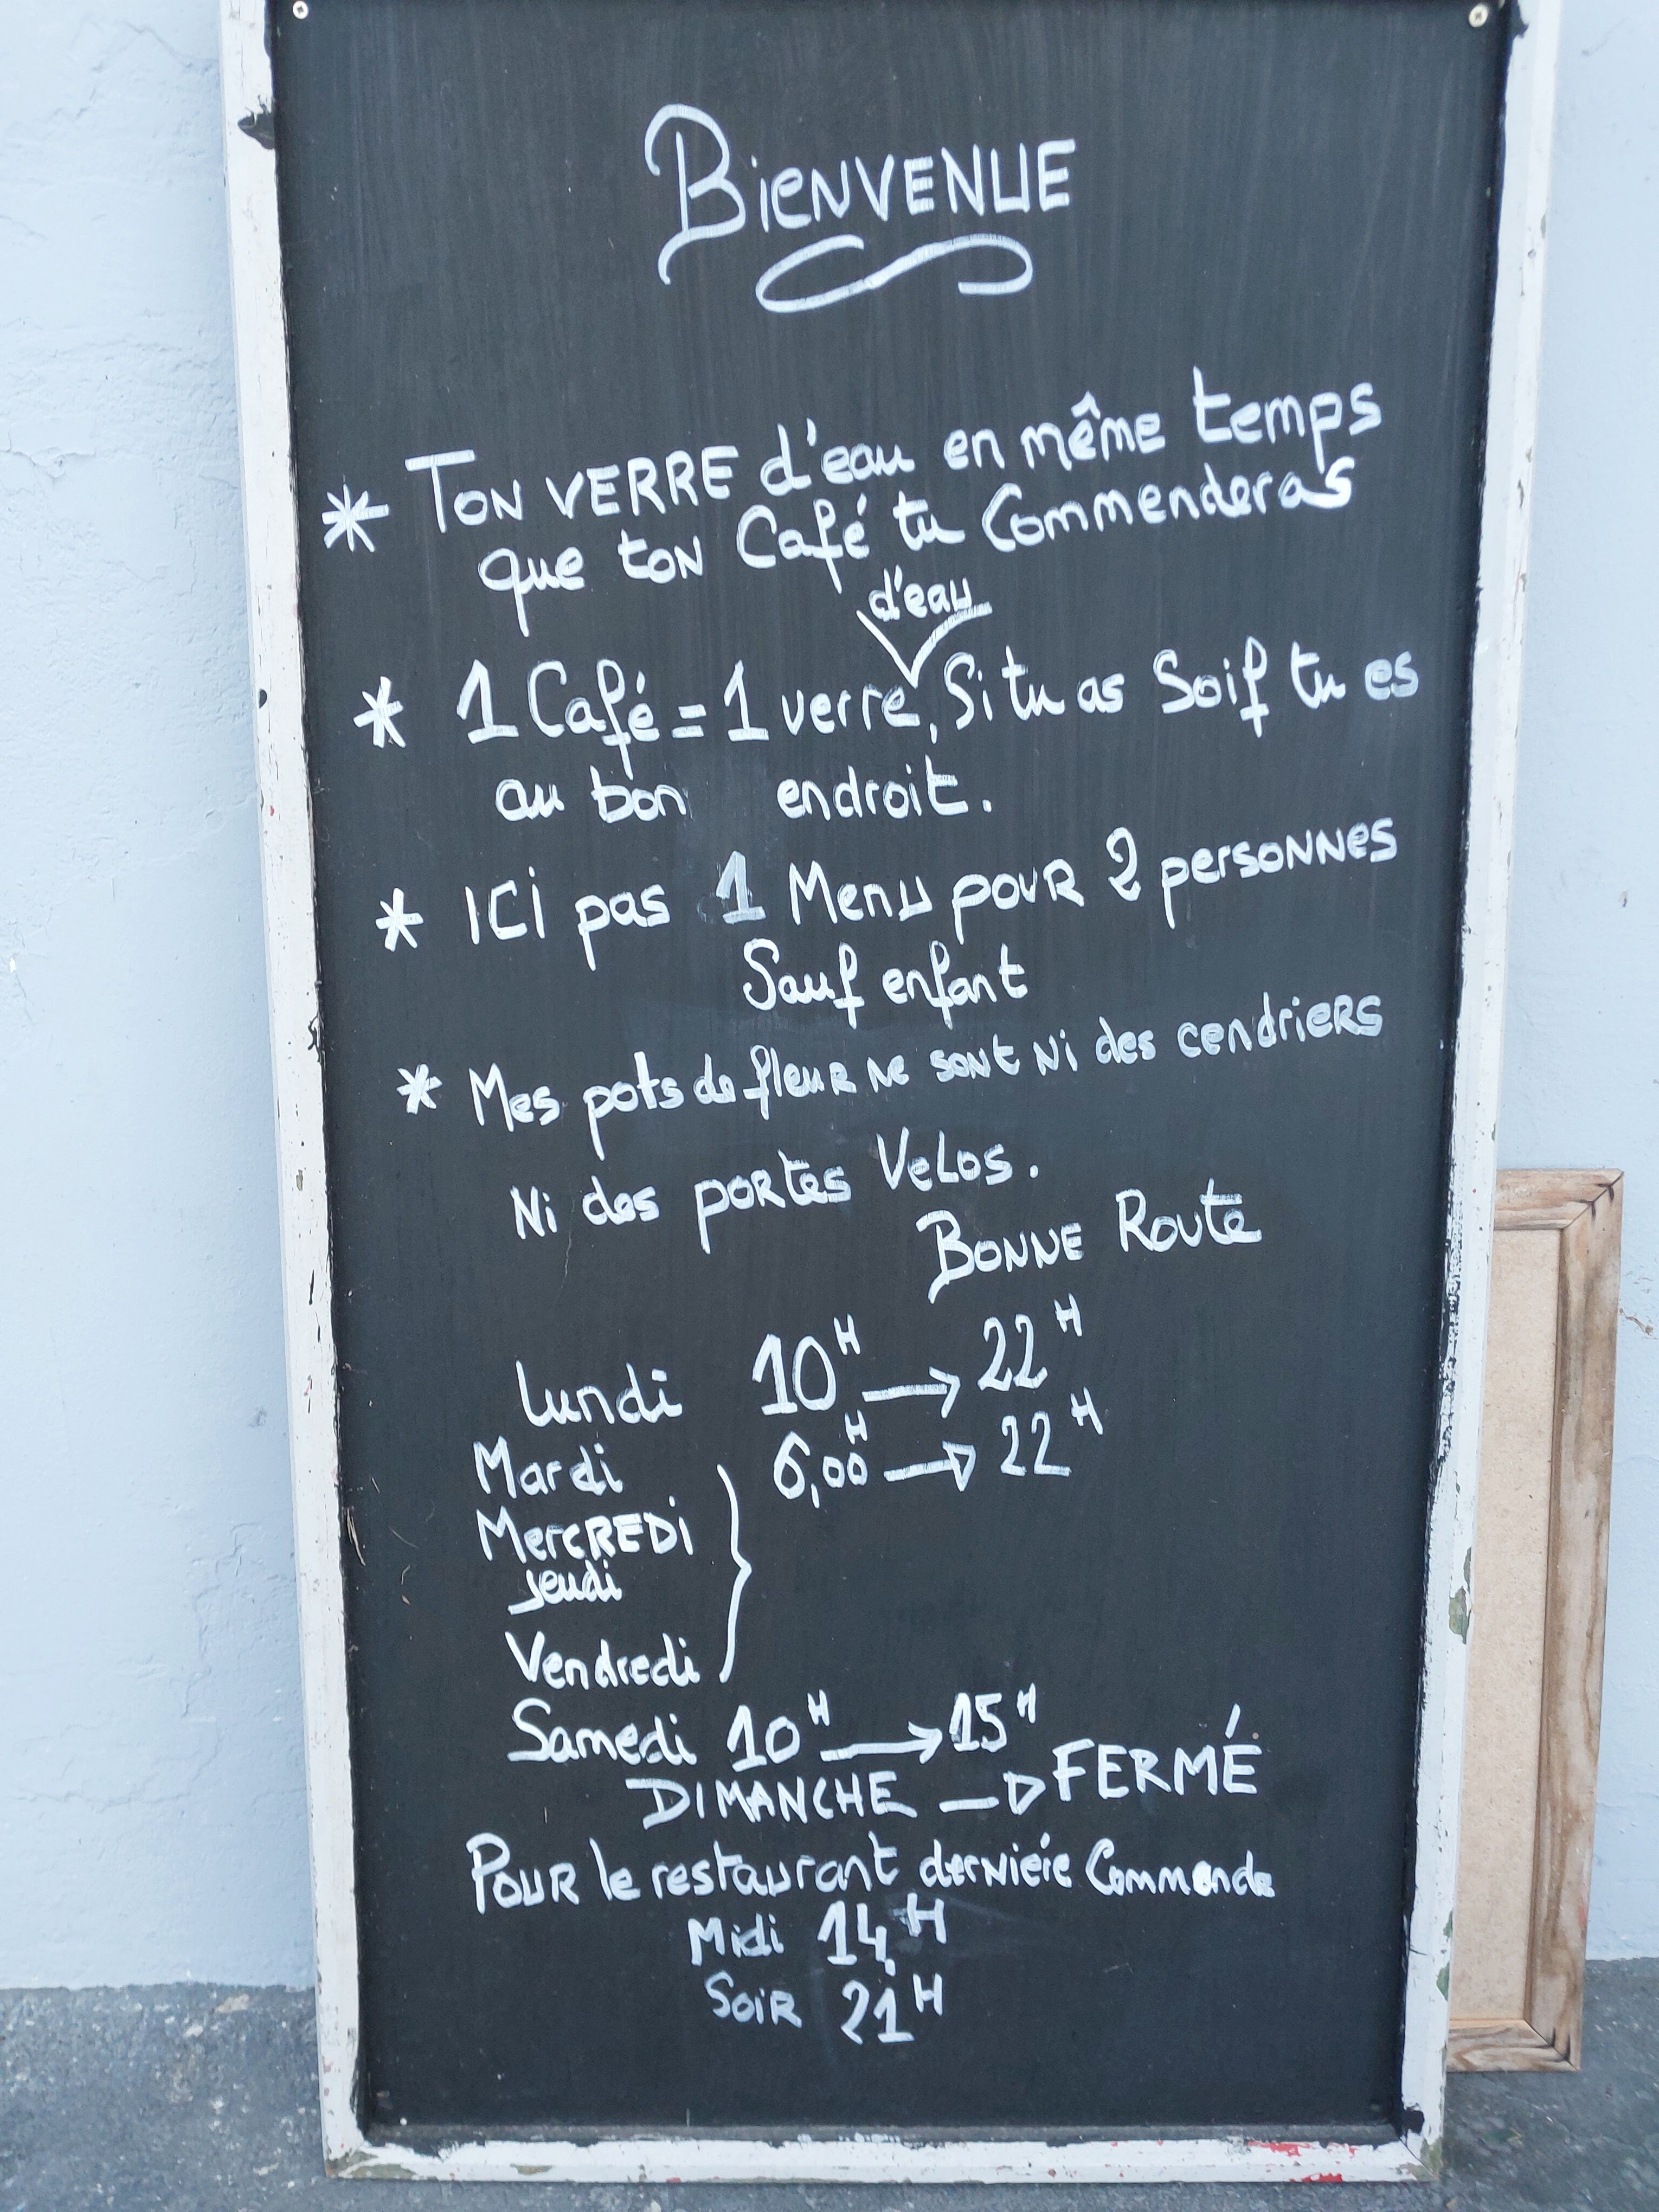 BieNVENUE
* TON VERRE d'eau en même temps
que ton Café tu Commenderas
d'eau
* 1 Café = 1 verre, Si tu as Soif tu es
au bon endroit.
* ICi pas 1 Menu pour 2 personnes
Sauf enfant
* Mes pots de fleur ne sont Ni des cendriers
Ni des portes Velos.
Bonne Route
lundi 10H → 22H
Mardi 6,00H → 22H
MercREDi
jeudi
Vendredi
Samedi 10H → 15H
DIMANCHE → FERMÉ
Pour le restaurant derniére Commande
Midi 14H
Soir 21H